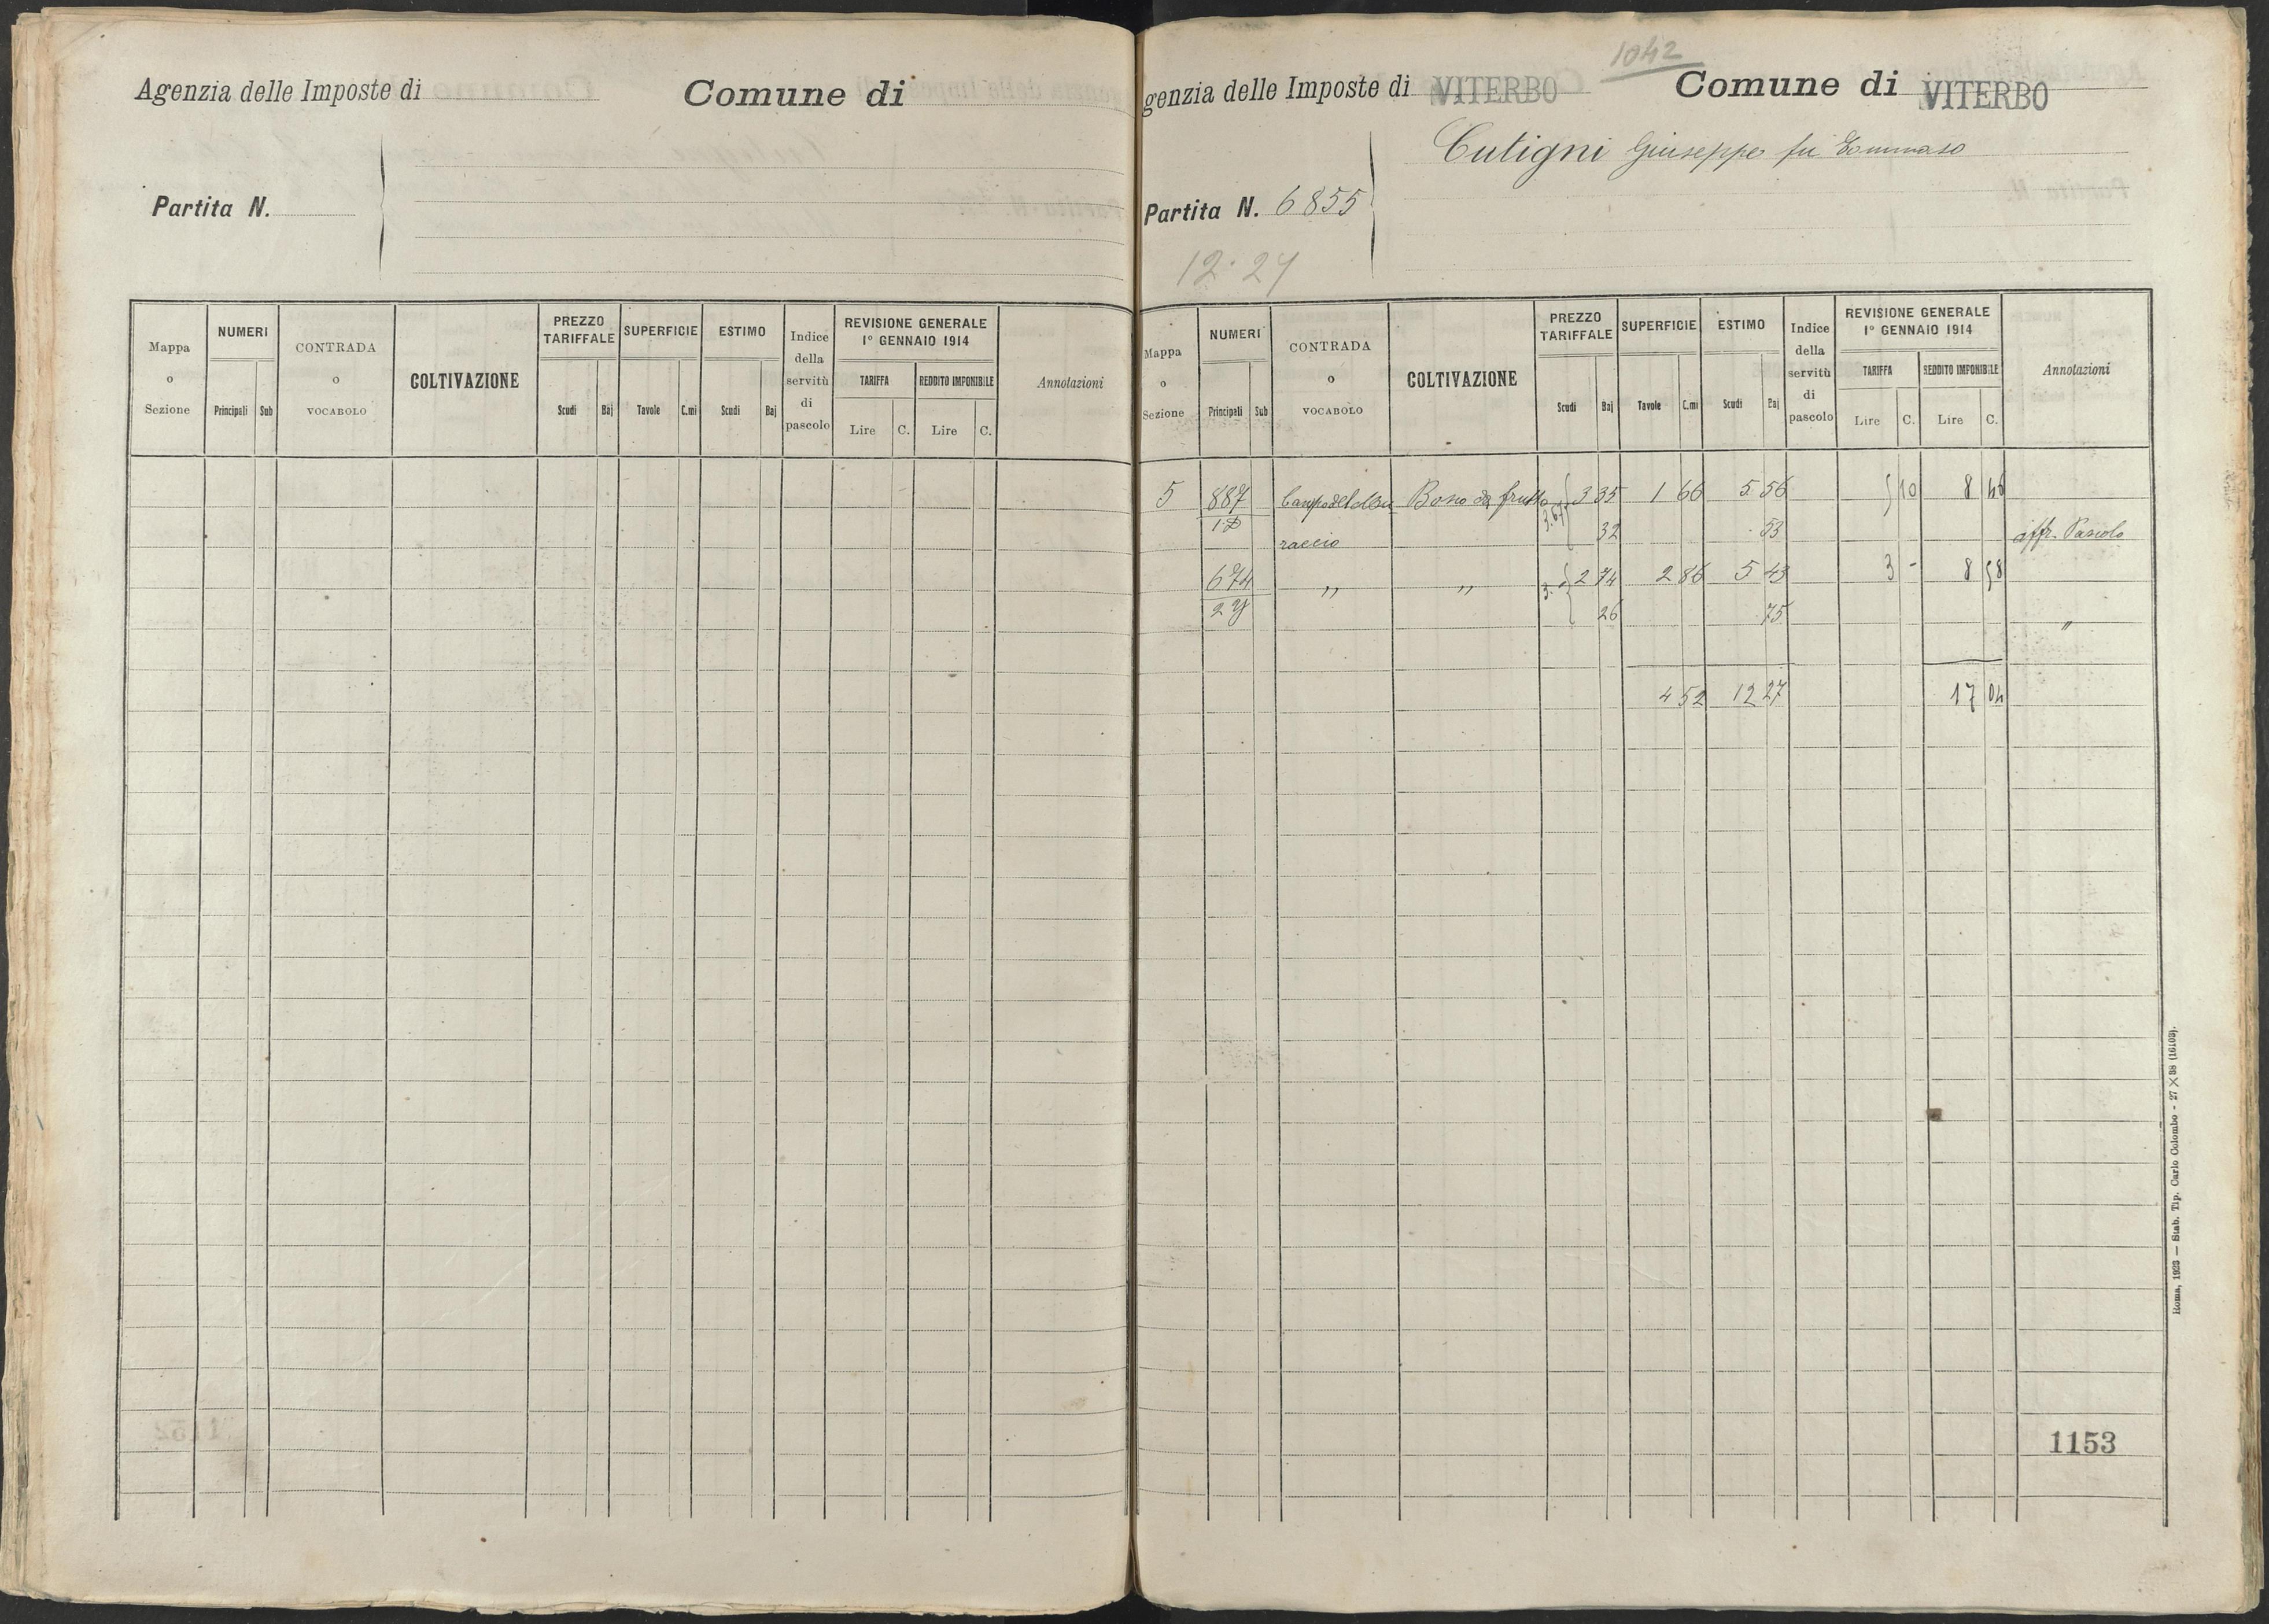 Agenzia delle Imposte di
Comune di
Partita N.
Mappa o Sezione
NUMERI
Principali
Sub
CONTRADA o VOCABOLO
COLTIVAZIONE
PREZZO TARIFFALE
Scudi
Baj
SUPERFICIE
Tavole
C.mi
ESTIMO
Scudi
Baj
Indice della servitù di pascolo
REVISIONE GENERALE
1º GENNAIO 1914
TARIFFA
Lire
C.
REDDITO IMPONIBILE
Lire
C.
Annotazioni
1042
genzia delle Imposte di VITERBO
Comune di VITERBO
Cutigni Giuseppe fu Tommaso
Partita N. 6855
12.27
Mappa o Sezione
NUMERI
Principali
Sub
CONTRADA o VOCABOLO
COLTIVAZIONE
PREZZO TARIFFALE
Scudi
Baj
SUPERFICIE
Tavole
C.mi
ESTIMO
Scudi
Baj
Indice della servitù di pascolo
REVISIONE GENERALE
1º GENNAIO 1914
TARIFFA
Lire
C.
REDDITO IMPONIBILE
Lire
C.
Annotazioni
5 887 Bosco da frutto 3.67 3 35 1 66 5 56 5 10 8 46
1 32 53 affr. Pascolo
674 " " 3. 2 74 2 86 5 43 3 - 8 58
2 26 75 "
4 52 12 27 17 04
Roma, 1923 — Stab. Tip. Carlo Colombo - 27 × 38 (16103).
1153